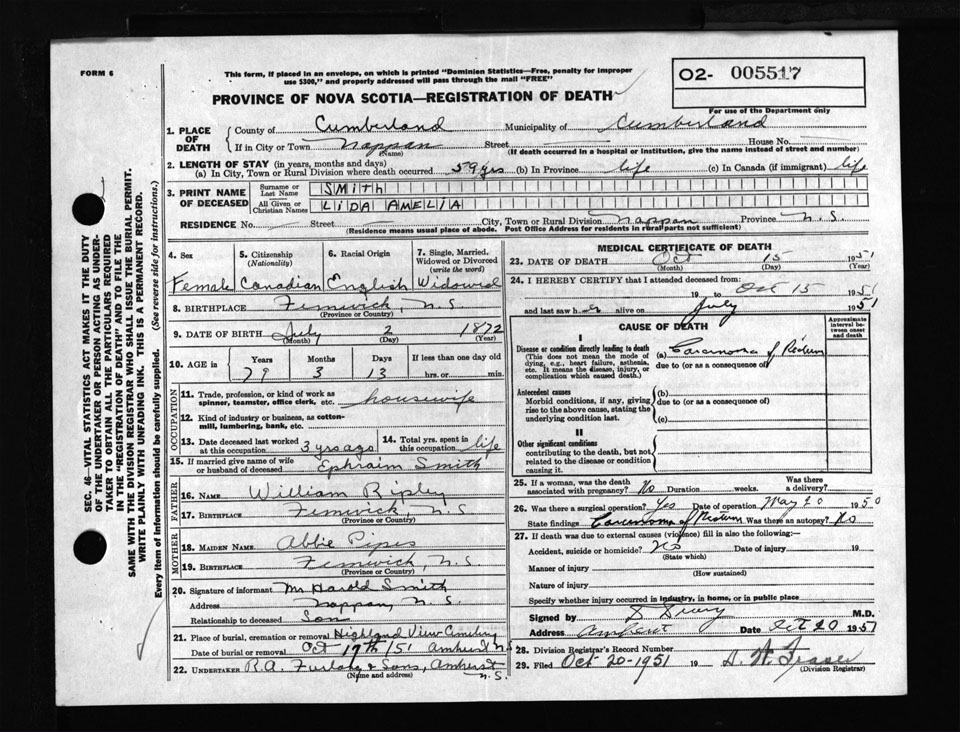 FORM 6
This form, if placed in an envelope, on which is printed "Dominion Statistics—Free, penalty for improper
use $300," and properly addressed will pass through the mail "FREE"
O2- 005517
For use of the Department only
PROVINCE OF NOVA SCOTIA—REGISTRATION OF DEATH
1. PLACE OF DEATH
County of Cumberland Municipality of Cumberland
If in City or Town Nappan Street House No.
(Name) (If death occurred in a hospital or institution, give the name instead of street and number)
2. LENGTH OF STAY (in years, months and days)
(a) In City, Town or Rural Division where death occurred 59 yrs (b) In Province life (c) In Canada (if immigrant) life
3. PRINT NAME OF DECEASED
Surname or Last Name SMITH
All Given or Christian Names LIDA AMELIA
RESIDENCE No. Street City, Town or Rural Division Nappan Province N.S.
(Residence means usual place of abode. Post Office Address for residents in rural parts not sufficient)
4. Sex 5. Citizenship (Nationality) 6. Racial Origin 7. Single, Married, Widowed or Divorced (write the word)
Female Canadian English Widowed
8. BIRTHPLACE Fenwick, N.S.
(Province or Country)
9. DATE OF BIRTH July 2 1872
(Month) (Day) (Year)
10. AGE in Years Months Days If less than one day old
79 3 13 hrs. or min.
OCCUPATION
11. Trade, profession, or kind of work as spinner, teamster, office clerk, etc. housewife
12. Kind of industry or business, as cotton-mill, lumbering, bank, etc.
13. Date deceased last worked at this occupation 3 yrs ago 14. Total yrs. spent in this occupation life
15. If married give name of wife or husband of deceased Ephraim Smith
FATHER
16. NAME William Ripley
17. BIRTHPLACE Fenwick, N.S.
(Province or Country)
MOTHER
18. MAIDEN NAME Abbie Pipes
19. BIRTHPLACE Fenwick, N.S.
(Province or Country)
20. Signature of informant Mr Harold Smith
Address Nappan, N.S.
Relationship to deceased Son
21. Place of burial, cremation or removal Highland View Cemetery
Date of burial or removal Oct 17th/51 Amherst N.S.
22. UNDERTAKER R.A. Furlong & Sons, Amherst N.S.
(Name and address)
MEDICAL CERTIFICATE OF DEATH
23. DATE OF DEATH Oct 15 1951
(Month) (Day) (Year)
24. I HEREBY CERTIFY that I attended deceased from:
19 to Oct 15 1951
and last saw her alive on July 1951
CAUSE OF DEATH
Approximate interval between onset and death
I
Disease or condition directly leading to death
(This does not mean the mode of dying, e.g., heart failure, asthenia, etc. It means the disease, injury, or complication which caused death.)
(a) Carcinoma of Rectum
due to (or as a consequence of)
Antecedent causes
Morbid conditions, if any, giving rise to the above cause, stating the underlying condition last.
(b)
due to (or as a consequence of)
(c)
II
Other significant conditions
contributing to the death, but not related to the disease or condition causing it.
25. If a woman, was the death associated with pregnancy? No Duration weeks. Was there a delivery?
26. Was there a surgical operation? Yes Date of operation May 20 1950
State findings Carcinoma of Rectum Was there an autopsy? No
27. If death was due to external causes (violence) fill in also the following:—
Accident, suicide or homicide? No Date of injury 19
(State which)
Manner of injury
(How sustained)
Nature of injury
Specify whether injury occurred in industry, in home, or in public place
Signed by M.D.
Address Date Oct 20 1951
28. Division Registrar's Record Number
29. Filed Oct 20-1951 19 Fraser
(Division Registrar)
SEC. 46—VITAL STATISTICS ACT MAKES IT THE DUTY
OF THE UNDERTAKER OR PERSON ACTING AS UNDER-
TAKER TO OBTAIN ALL THE PARTICULARS REQUIRED
IN THE "REGISTRATION OF DEATH" AND TO FILE THE
SAME WITH THE DIVISION REGISTRAR WHO SHALL ISSUE THE BURIAL PERMIT.
WRITE PLAINLY WITH UNFADING INK. THIS IS A PERMANENT RECORD.
Every item of information should be carefully supplied. (See reverse side for instructions.)